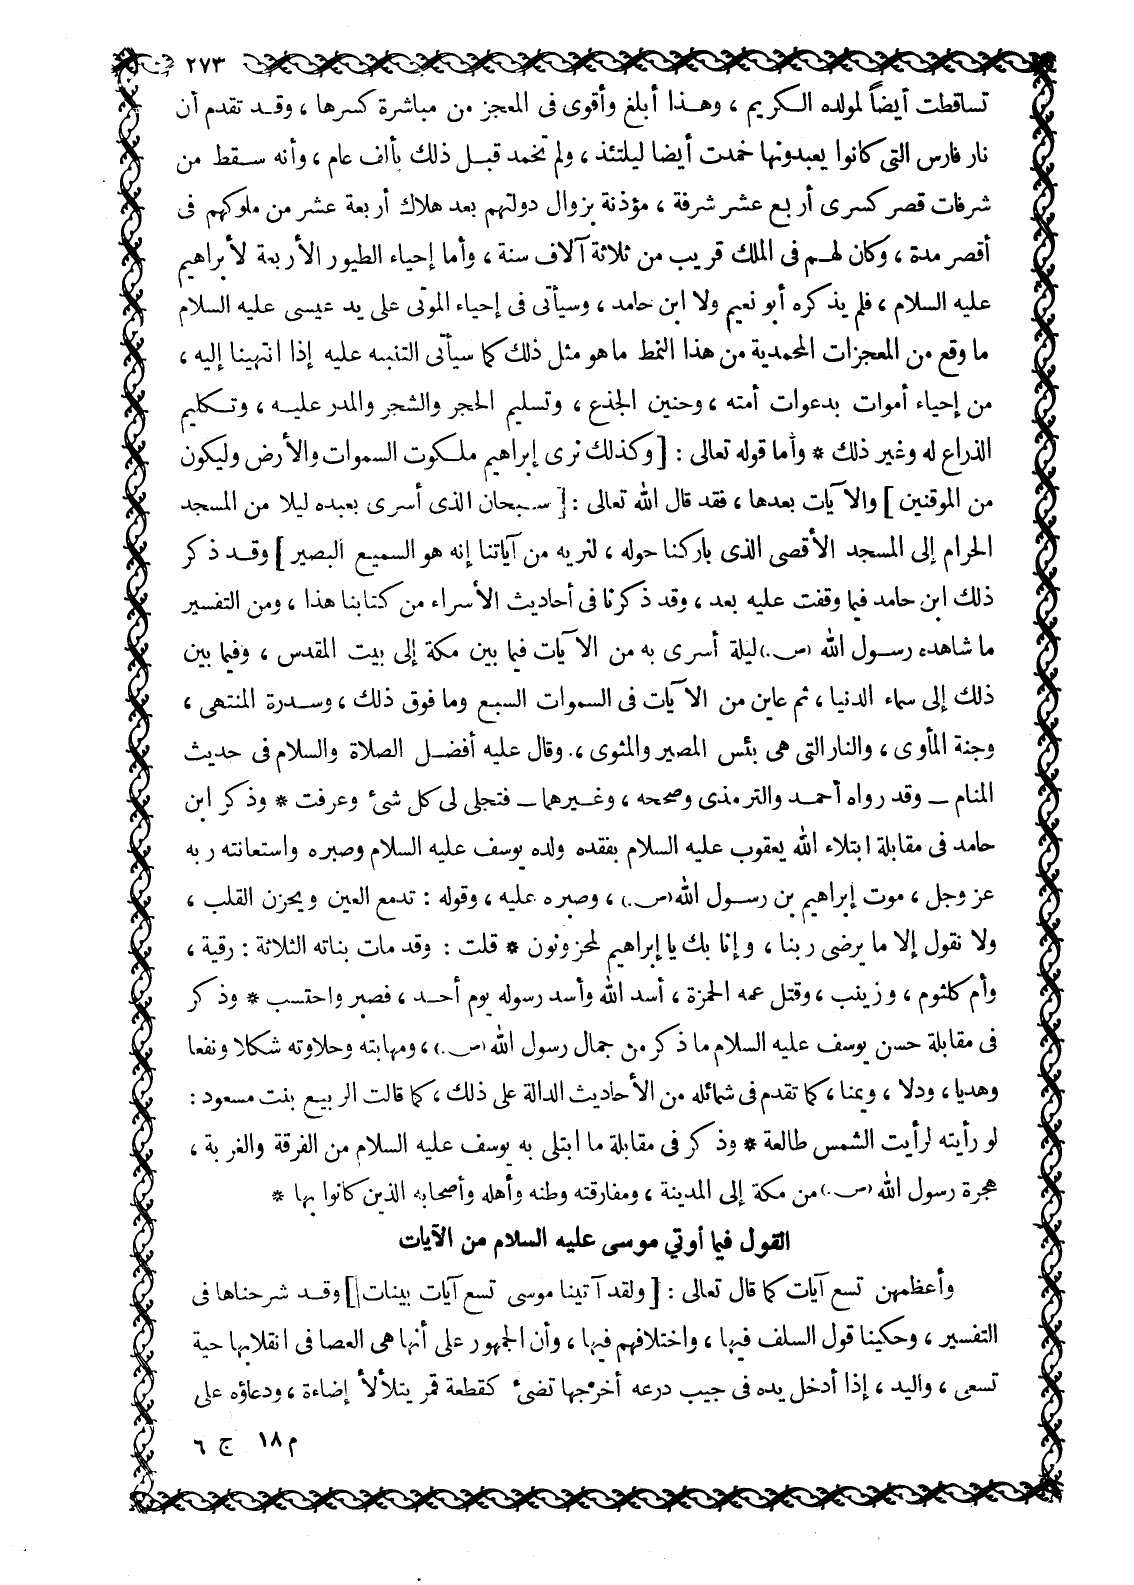 ٢٧٣
تساقطت أيضاً لمولده الكريم ، وهذا أبلغ وأقوى فى المعجز من مباشرة كسرها ، وقد تقدم أن
نار فارس التى كانوا يعبدونها خمدت أيضا ليلتئذ ، ولم تخمد قبل ذلك بألف عام ، وأنه سقط من
شرفات قصر كسرى أربع عشر شرفة ، مؤذنة بزوال دولتهم بعد هلاك أربعة عشر من ملوكهم فى
أقصر مدة ، وكان لهم فى الملك قريب من ثلاثة آلاف سنة ، وأما إحياء الطيور الأربعة لأبراهيم
عليه السلام ، فلم يذكره أبو نعيم ولا ابن حامد ، وسيأتى فى إحياء الموتى على يد عيسى عليه السلام
ما وقع من المعجزات المحمدية من هذا النمط ماهو مثل ذلك كما سيأتى التنبيه عليه إذا انتهينا إليه ،
من إحياء أموات بدعوات أمته ، وحنين الجذع ، وتسليم الحجر والشجر والمدر عليه ، وتكليم
الذراع له وغير ذلك * وأما قوله تعالى : [ وكذلك نرى إبراهيم ملكوت السموات والأرض وليكون
من الموقنين ] والآيات بعدها ، فقد قال الله تعالى : [ سبحان الذى أسرى بعبده ليلا من المسجد
الحرام إلى المسجد الأقصى الذى باركنا حوله ، لنريه من آياتنا إنه هو السميع البصير ] وقد ذكر
ذلك ابن حامد فيما وقفت عليه بعد ، وقد ذكرنا فى أحاديث الأسراء من كتابنا هذا ، ومن التفسير
ما شاهده رسول الله (ص.) ليلة أسرى به من الآيات فيما بين مكة إلى بيت المقدس ، وفيما بين
ذلك إلى سماء الدنيا ، ثم عاين من الآيات فى السموات السبع وما فوق ذلك ، وسدرة المنتهى ،
وجنة المأوى ، والنار التى هى بئس المصير والمثوى ،. وقال عليه أفضل الصلاة والسلام فى حديث
المنام ــ وقد رواه أحمد والترمذى وصححه ، وغيرهما ــ فتجلى لى كل شىء وعرفت * وذكر ابن
حامد فى مقابلة ابتلاء الله يعقوب عليه السلام بفقده ولده يوسف عليه السلام وصبره واستعانته ربه
عز وجل ، موت إبراهيم بن رسول الله (ص.) ، وصبره عليه ، وقوله : تدمع العين ويحزن القلب ،
ولا نقول إلا ما يرضى ربنا ، وإنا بك يا إبراهيم لمحزونون * قلت : وقد مات بناته الثلاثة : رقية ،
وأم كلثوم ، وزينب ، وقتل عمه الحمزة ، أسد الله وأسد رسوله يوم أحد ، فصبر واحتسب * وذكر
فى مقابلة حسن يوسف عليه السلام ما ذكر من جمال رسول الله (ص.) ، ومهابته وحلاوته شكلا ونفعا
وهديا ، ودلا ، ويمنا ، كما تقدم فى شمائله من الأحاديث الدالة على ذلك ، كما قالت الربيع بنت مسعود :
لو رأيته لرأيت الشمس طالعة * وذكر فى مقابلة ما ابتلى به يوسف عليه السلام من الفرقة والغربة ،
هجرة رسول الله (ص.) من مكة إلى المدينة ، ومفارقته وطنه وأهله وأصحابه الذين كانوا بها *
القول فيما أوتي موسى عليه السلام من الآيات
وأعظمهن تسع آيات كما قال تعالى : [ ولقد آتينا موسى تسع آيات بينات ] وقد شرحناها فى
التفسير ، وحكينا قول السلف فيها ، واختلافهم فيها ، وأن الجمهور على أنها هى العصا فى انقلابها حية
تسعى ، واليد ، إذا أدخل يده فى جيب درعه أخرجها تضىء كقطعة قمر يتلألأ إضاءة ، ودعاؤه على
م ١٨ ج ٦